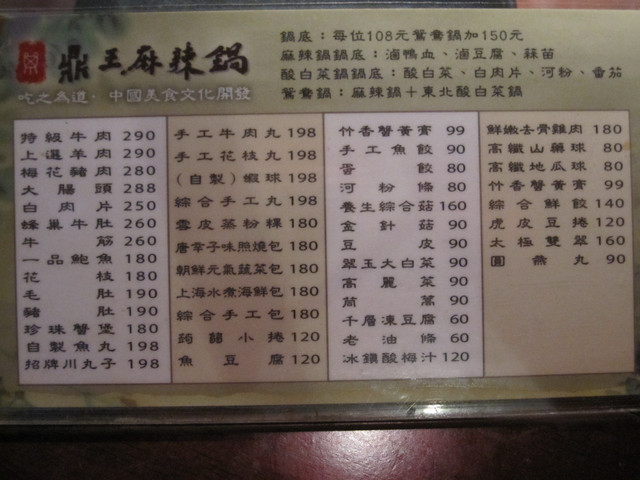 鼎王麻辣鍋
吃之為道．中國美食文化開發
鍋底：每位108元鴛鴦鍋加150元
麻辣鍋鍋底：滷鴨血、滷豆腐、蒜苗
酸白菜鍋鍋底：酸白菜、白肉片、河粉、番茄
鴛鴦鍋：麻辣鍋＋東北酸白菜鍋
特級牛肉 290
上選羊肉 290
梅花豬肉 280
大腸頭 288
白肉片 250
蜂巢牛肚 260
牛筋 260
一品鮑魚 180
花枝 180
毛肚 190
豬肚 190
珍珠蟹堡 180
自製魚丸 198
招牌川丸子 198
手工牛肉丸 198
手工花枝丸 198
（自製）蝦球 198
綜合手工丸 198
雪皮蒸粉粿 180
唐辛子味照燒包 180
朝鮮元氣蔬菜包 180
上海水煮海鮮包 180
綜合手工包 180
蒟蒻小捲 120
魚豆腐 120
竹香蟹黃膏 99
手工魚餃 90
蛋餃 80
河粉條 80
養生綜合菇 160
金針菇 90
豆皮 90
翠玉大白菜 90
高麗菜 90
茼蒿 90
千層凍豆腐 60
老油條 60
冰鎮酸梅汁 120
鮮嫩去骨雞肉 180
高纖山藥球 80
高纖地瓜球 80
竹香蟹黃膏 99
綜合鮮餃 140
虎皮豆捲 120
太極雙翠 160
圓燕丸 90